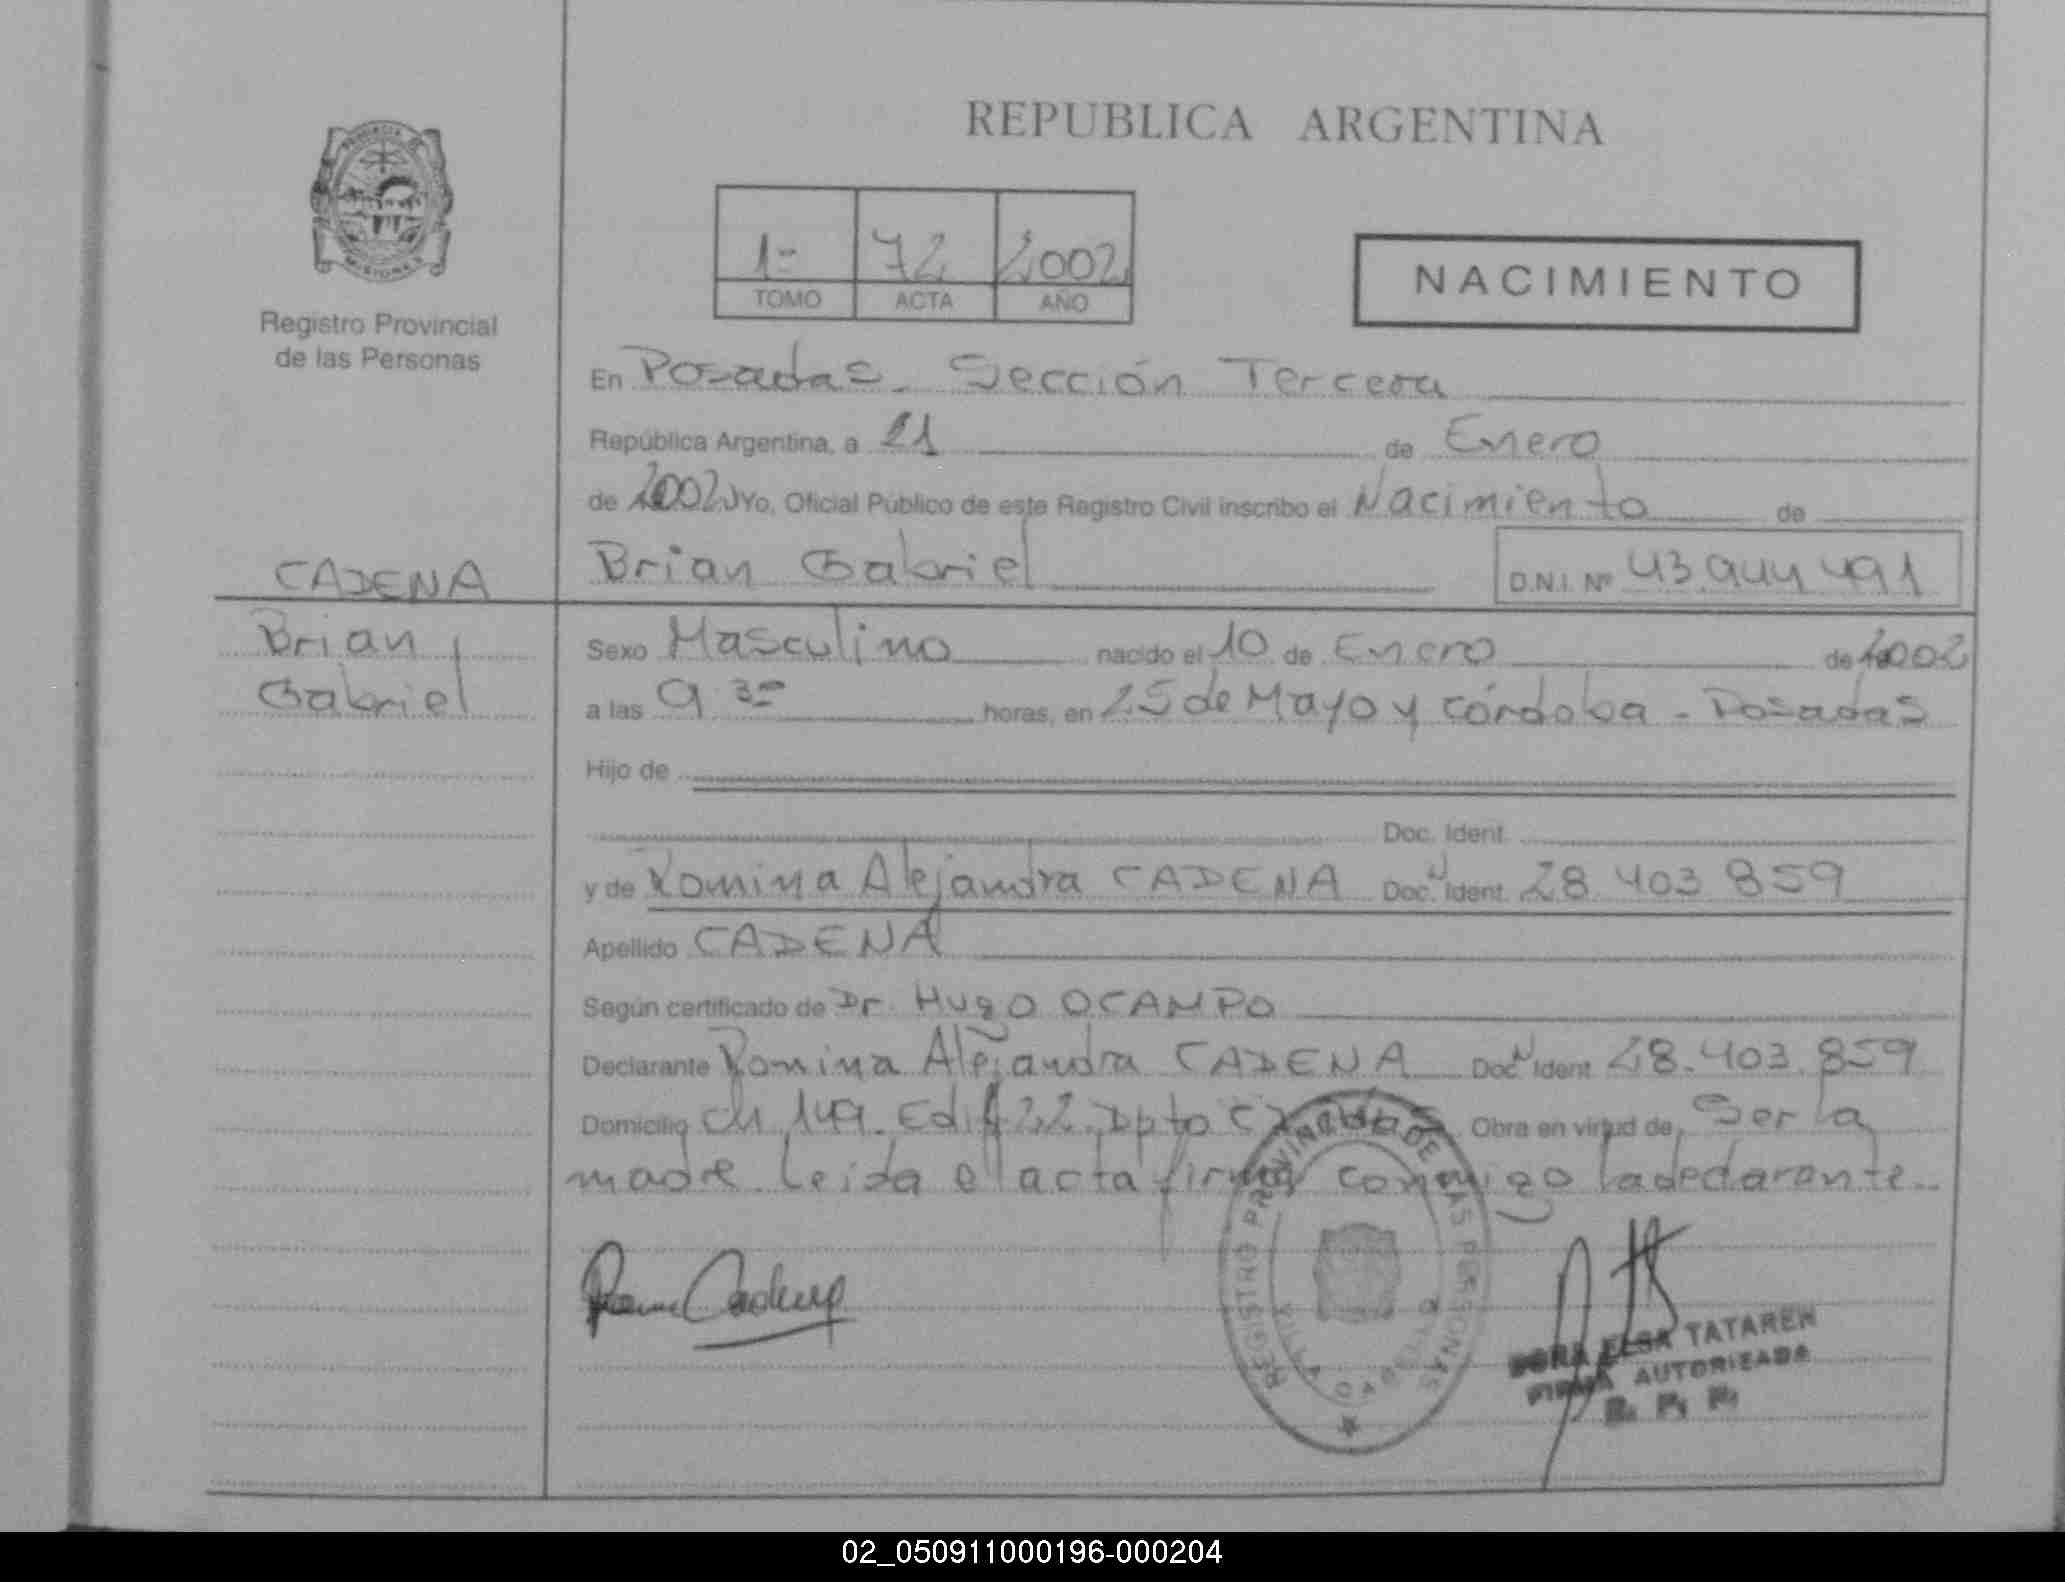 REPUBLICA ARGENTINA
PROVINCIA DE
MISIONES
Registro Provincial
de las Personas
1º 72 2002
TOMO ACTA AÑO
NACIMIENTO
En Posadas. Sección Tercera
República Argentina, a 21 de Enero
de 2002 Yo, Oficial Público de este Registro Civil inscribo el Nacimiento de
CADENA
Brian Gabriel D.N.I. Nº 43.944.491
Brian
Gabriel
Sexo Masculino nacido el 10 de Enero de 2002
a las 9 30 horas, en 25 de Mayo y Córdoba - Posadas
Hijo de
Doc. Ident.
y de Romina Alejandra CADENA Doc. Ident. 28.403.859
Apellido CADENA
Según certificado de Dr. Hugo OCAMPO
Declarante Romina Alejandra CADENA Doc. Ident. 28.403.859
Domicilio Ch 149. Edif 22. Dpto Obra en virtud de Ser la
madre. Leida el acta firma conmigo la declarante.
REGISTRO PROVINCIAL DE LAS PERSONAS
VILLA CABELLO
Cadena
DORA ELSA TATAREN
FIRMA AUTORIZADA
R. P. P.
02_050911000196-000204